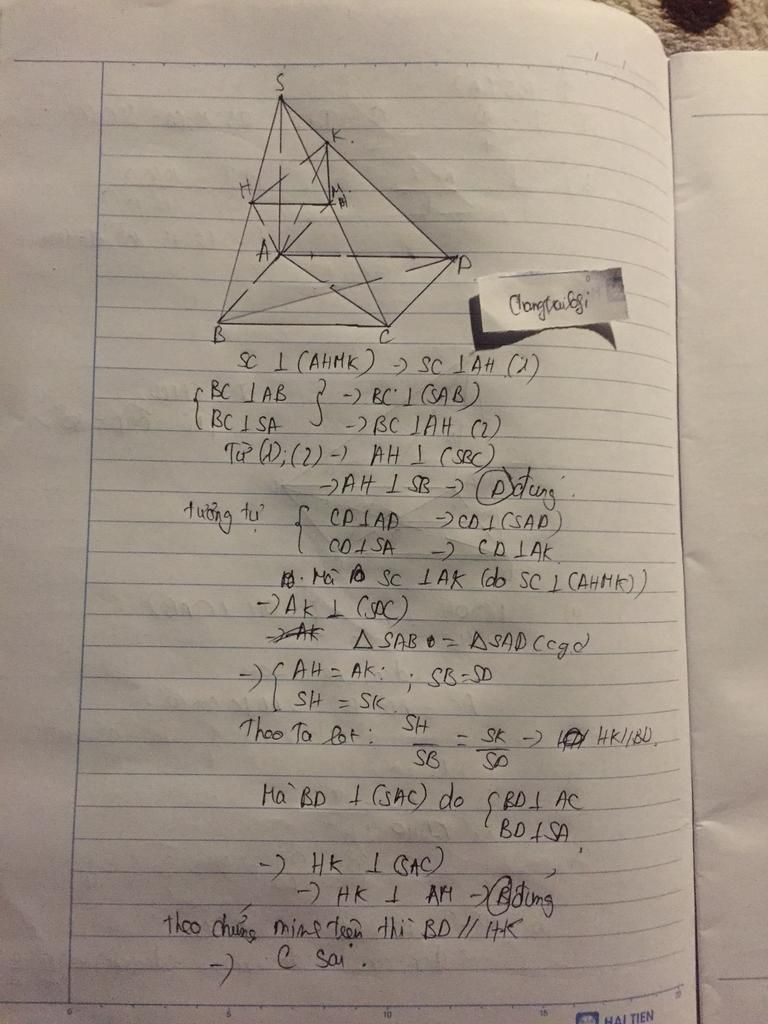 S
K
H
M
A
D
B
C
SC ⊥ (AHMK) → SC ⊥ AH (1)
{ BC ⊥ AB } → BC ⊥ (SAB)
{ BC ⊥ SA → BC ⊥ AH (2)
Từ (1); (2) → AH ⊥ (SBC)
→ AH ⊥ SB → D đúng.
tương tự { CD ⊥ AD → CD ⊥ (SAD)
CD ⊥ SA → CD ⊥ AK
Mà SC ⊥ AK (do SC ⊥ (AHMK))
→ AK ⊥ (SDC)
→ AK Δ SAB = Δ SAD (cgc)
→ { AH = AK ; SB = SD
SH = SK
Theo Ta let: SH/SB = SK/SD → HK // BD.
Mà BD ⊥ (SAC) do { BD ⊥ AC
BD ⊥ SA
→ HK ⊥ (SAC)
→ HK ⊥ AM → B đúng
theo chứng minh trên thì BD // HK
→ C sai.
HẢI TIẾN
0 5 10 15